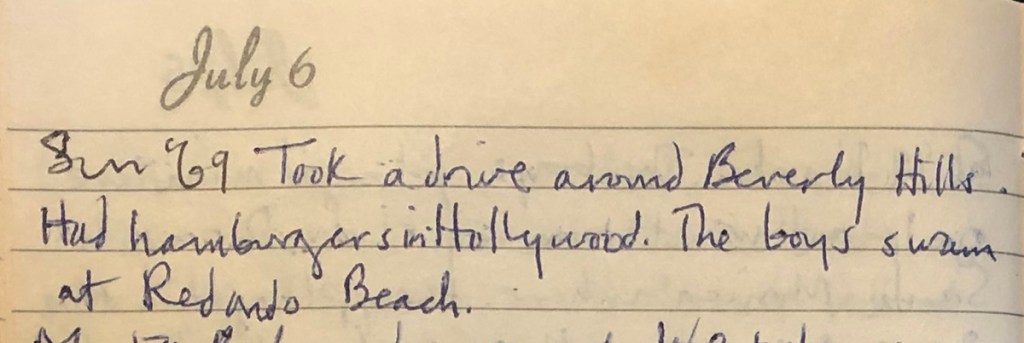 July 6
Sun '69 Took a drive around Beverly Hills.
Had hamburgers in Hollywood. The boys swam
at Redondo Beach.